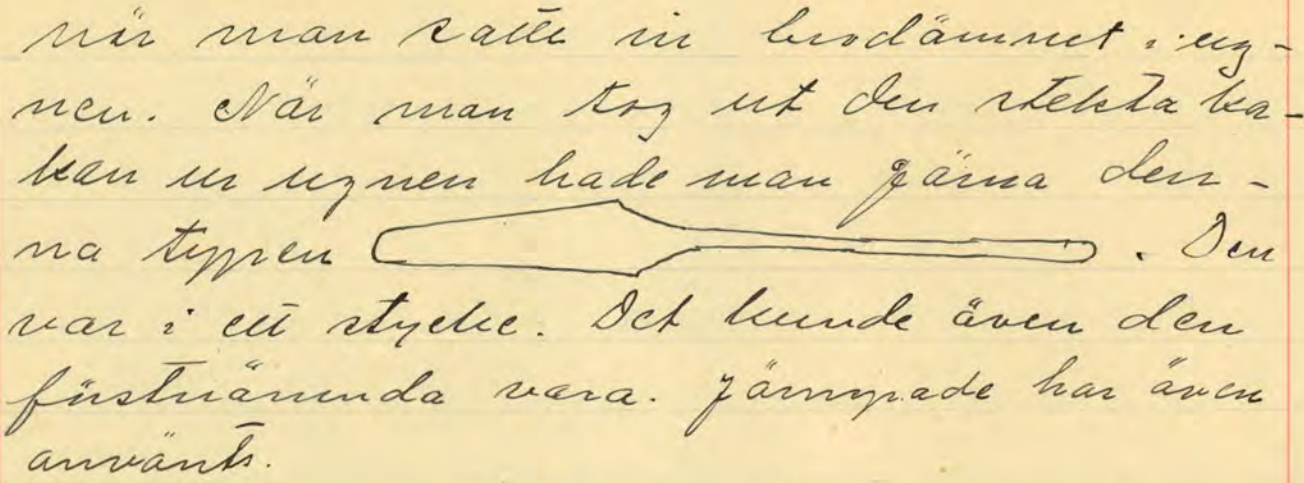 när man satte in brodämnet i ug-
nen. När man tog ut den stekta ka-
kan ur ugnen hade man gärna den-
na typen . Den
var i ett stycke. Det kunde även den
förstnämnda vara. Järnspade har även
använts.